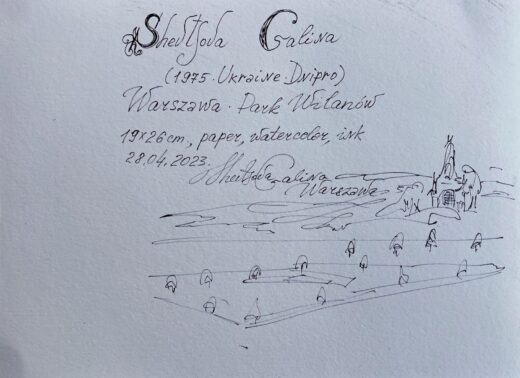 Shevtsova Galina
(1975. Ukraine. Dnipro)
Warszawa. Park Wilanów
19x26cm, paper, watercolor, ink
28.04.2023.
Shevtsova Galina
Warszawa